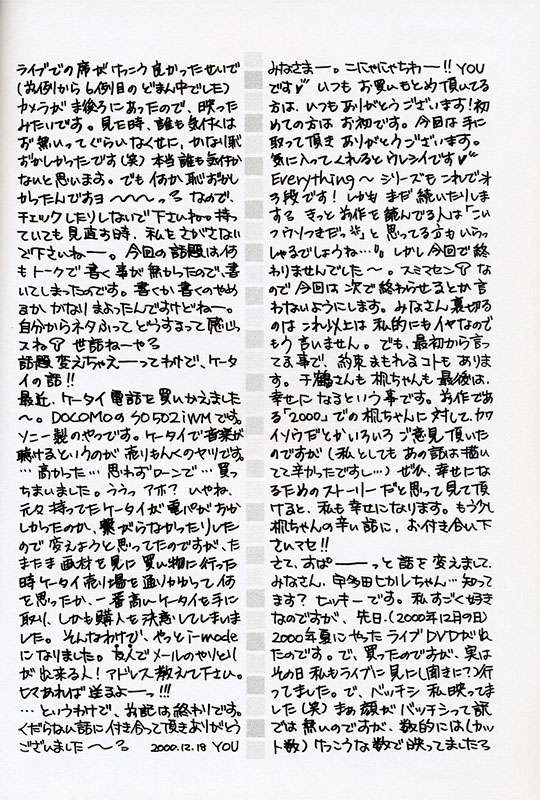 みなさまー。こにゃにゃちわー!! YOU
です♥ いつも お買いもとめ頂いてる
方は、いつもありがとうございます!初
めての方は お初です。今回は手に
取って頂き ありがとうございます。
気に入ってくれるとウレシイです♥
Everything～シリーズもこれでオ
3段です! しかもまだ続いたりしま
する きっと前作を読んでる人は「こい
つウソつきだっ」と思ってる方もいらっ
しゃるでしょうね…。しかし今回で終
わりませんでした～。スミマセン な
ので今回は次で終わらせるとか言
わないようにします。みなさん裏切る
のは これ以上は 私的にもイヤなので
もう言いません。でも、最初から言っ
てる事で、約束まもれるコトもありま
す。千鶴さんも 机ちゃんも 最後は、
幸せになるという事です。前作であ
る「2000」での机ちゃんに対して、カワ
イソウだとかいろいろ ご意見頂いた
のですが(私としてもあの話は描い
てて辛かったですし…)ぜひ、幸せにな
るためのストーリーだと思って見て頂
けると、私も幸せになります。もう少し
机ちゃんの辛い話に、お付き合い下
さいマセ!!
さて、すぱーーっと話を変えまして、
みなさん、宇多田ヒカルちゃん…知って
ます? ヒッキーです。私すごく好き
なのですが、先日、(2000年12月9日)
2000年夏にやったライブDVDが出
たのです。で、買ったのですが、実は
その日 私もライブに見に(聞きに?)行
ってました。で、バッチシ 私映ってま
した(笑)まぁ 顔がバッチシって訳
では無いのですが、数的には(カッ
ト数)けっこうな数で映ってましたっ
ライブでの席がけっこう良かったせいで
(前列から6列目のどまん中でした)
カメラが ま後ろにあったので、映った
みたいです。見た時、誰も気付くは
ず無いってぐらいなくせに、かなり恥
ずかしかったです(笑)本当 誰も気付か
ないと思います。でも 何か 恥ずかし
かったんですヨ～～～っ なので、
チェックしたりしないで下さいね。持っ
ていても見直す時、私をさがさない
で下さいねー。今回の話題は何
もトークで書く事が無かったので、書
いてしまったのです。書くか書くのやめ
るか、かなりまよったんですけどねー。
自分からネタふって どうするって感じっ
スね 世話ねーやっ
話題 変えちゃえーってわけで、ケータ
イの話!!
最近、ケータイ電話を買いかえました
～。DOCOMOのSO502iWMです。
ソニー製のやつです。ケータイで音楽が
聴けるというのが 売りもんくのヤツです
…高かった…思わずローンで…買っ
ちまいました。ううっ アホ? いやね、
元々持ってたケータイが電パがおか
しかったのか、繋がらなかったりした
ので変えようと思ってたのですが、た
またま 画材を見に 買い物に行った
時ケータイ売り場を通りかかって何
を思ったか、一番高いケータイを手に
取り、しかも購入を決意してしまいま
した。そんなわけで、やっとi-mode
になりました。友人でメールのやりとり
が出来る人!アドレス教えて下さい。
ヒマあれば送るよーっ!!!
…というわけで、お記は終わりです。
くだらない話に付き合って頂きありがとう
ございました～っ 2000.12.18 YOU